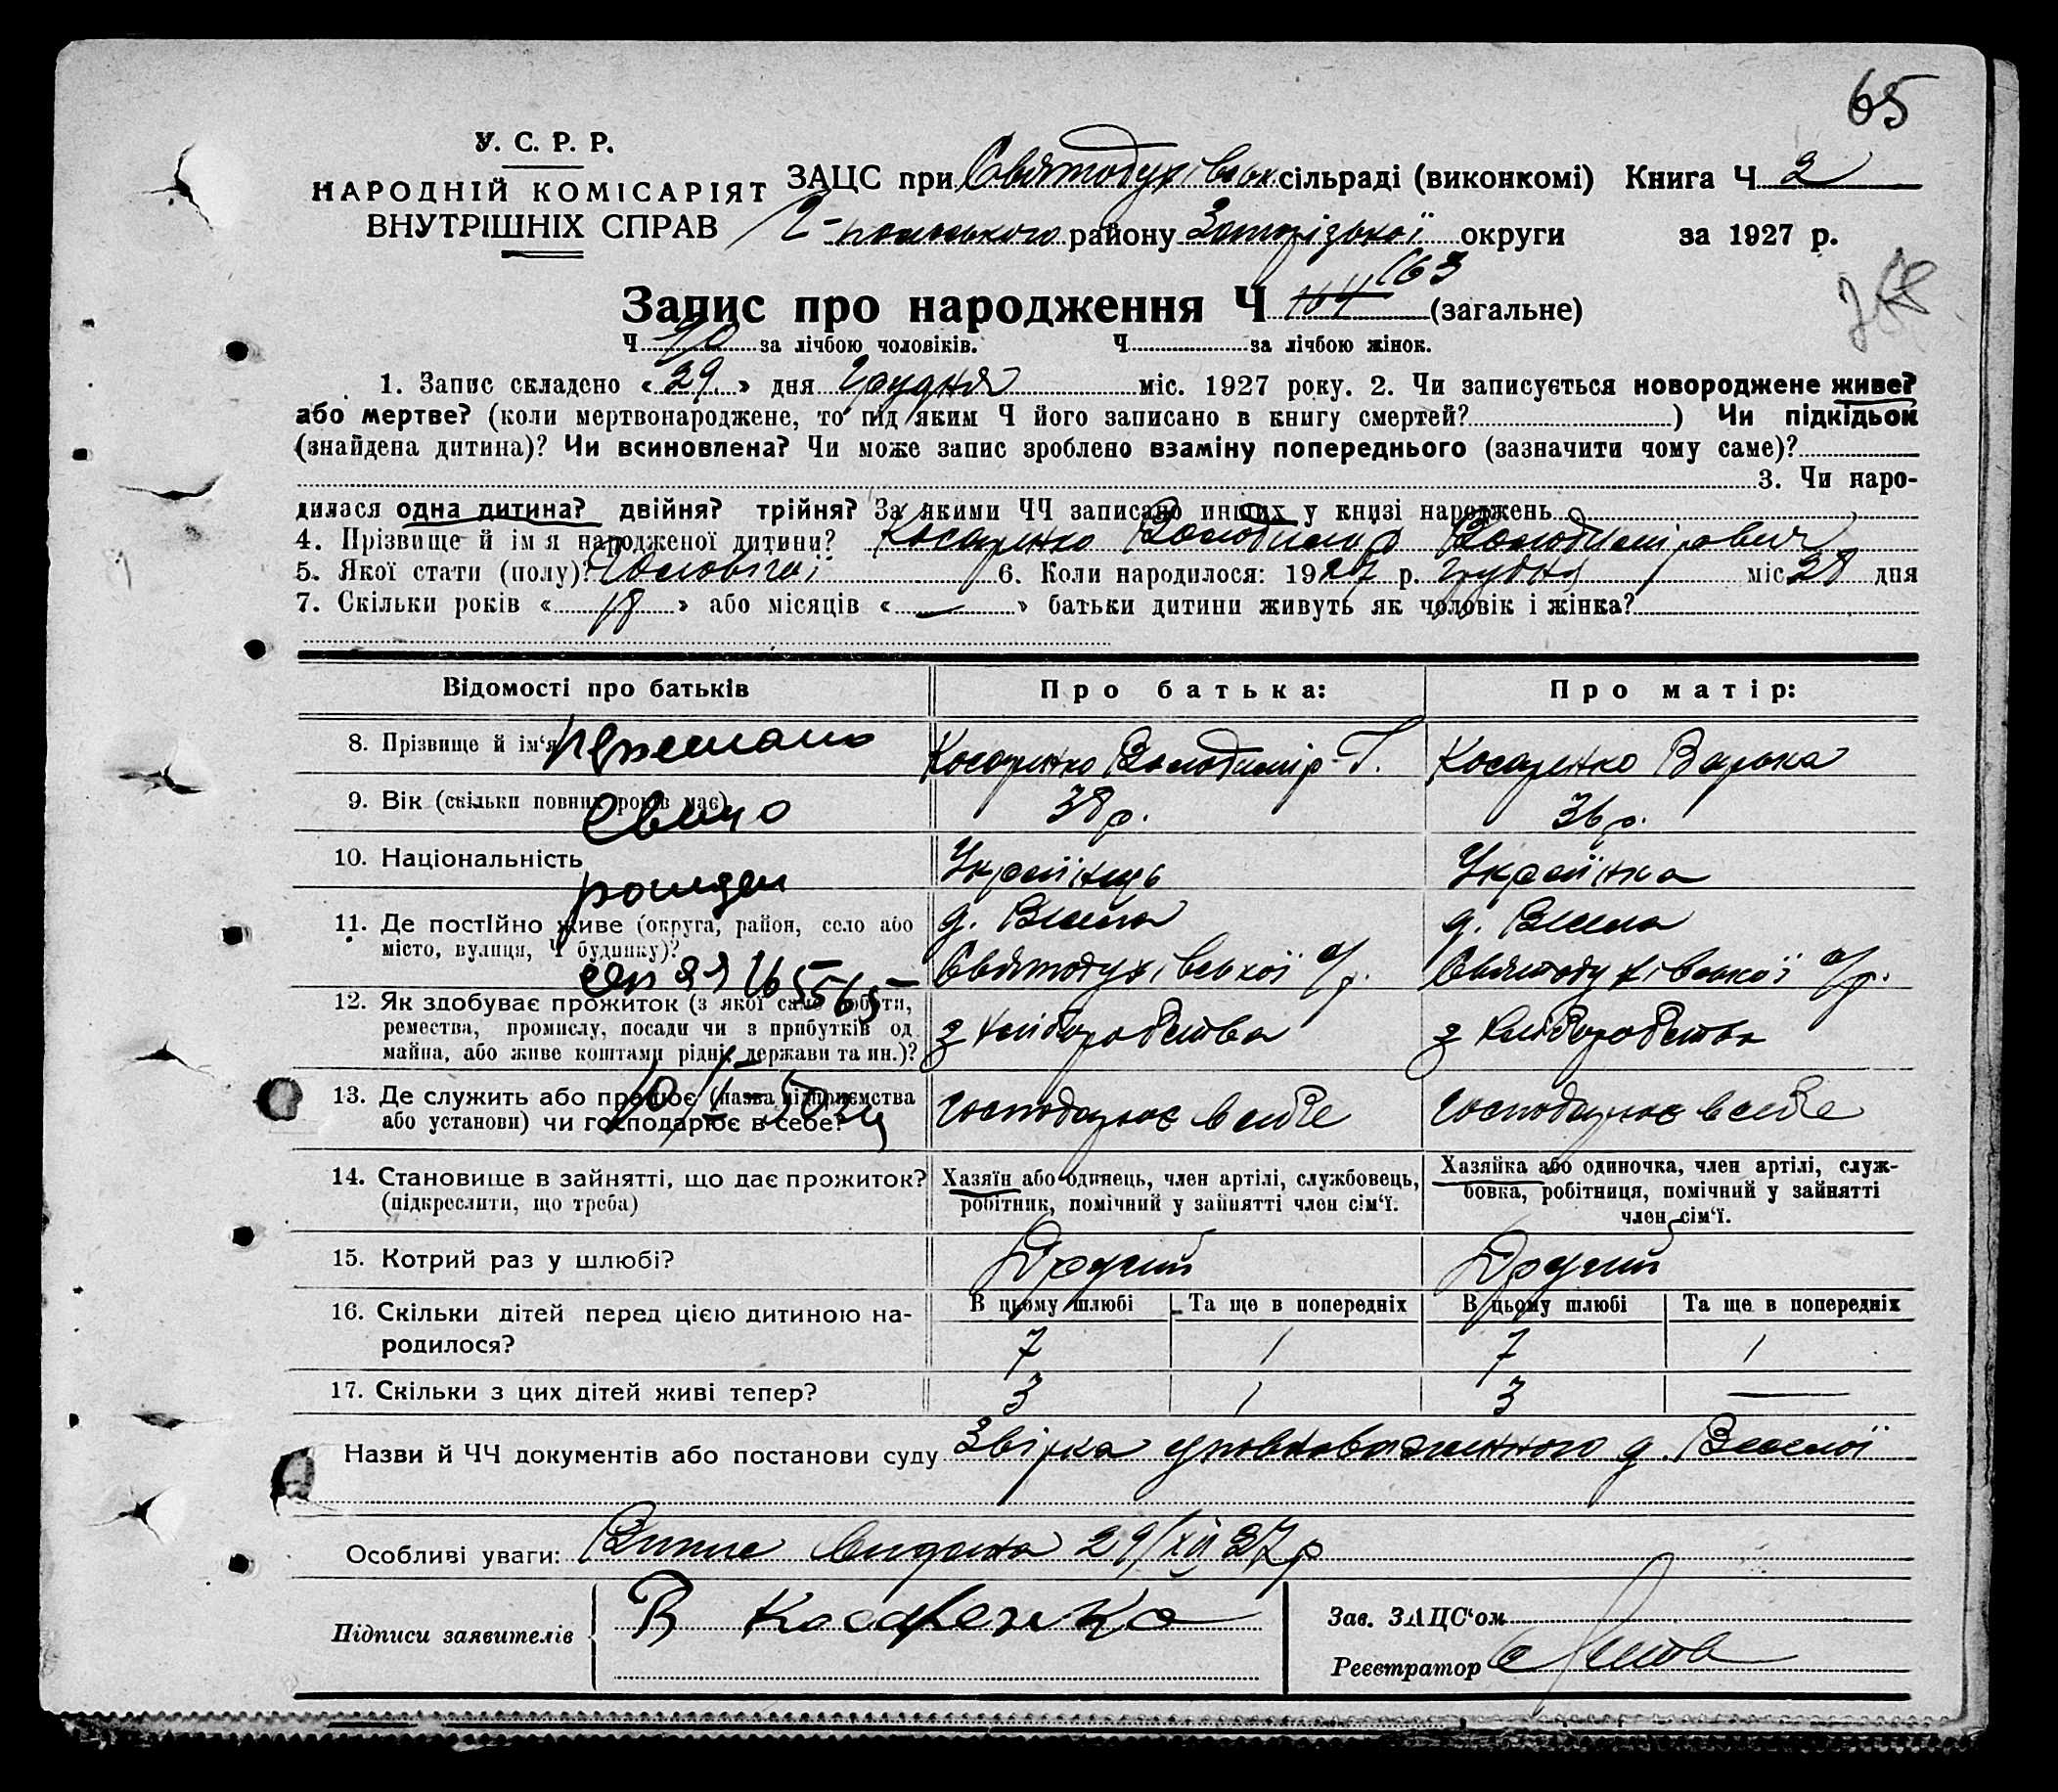 65
У. С. Р. Р.
НАРОДНІЙ КОМІСАРІЯТ
ВНУТРІШНІХ СПРАВ
ЗАЦС при Святодухівськ. сільраді (виконкомі) Книга Ч 2
району Запорізької округи за 1927 р.
Запис про народження Ч 164 163 (загальне)
Ч 90 за лічбою чоловіків. Ч за лічбою жінок.
1. Запис складено « 29 » дня Грудня міс. 1927 року. 2. Чи записується новороджене живе?
або мертве? (коли мертвонароджене, то під яким Ч його записано в книгу смертей? ) Чи підкідьок
(знайдена дитина)? Чи всиновлена? Чи може запис зроблено взаміну попереднього (зазначити чому саме)?
3. Чи наро-
дилася одна дитина? двійня? трійня? За якими ЧЧ записано инших у книзі народжень
4. Прізвище й ім'я народженої дитини? Косаренко Володимир Володимірович
5. Якої стати (полу)? 6. Коли народилося: 1927 р. грудня міс 28 дня
7. Скільки років « 18 » або місяців « — » батьки дитини живуть як чоловік і жінка?
Відомості про батьків Про батька: Про матір:
8. Прізвище й ім'я Косаренко Володимір Г. Косаренко Варька
9. Вік (скільки повних років має) 38 р. 36 р.
10. Національність Українець Українка
11. Де постійно живе (округа, район, село або
місто, вулиця, Ч будинку)?
д. Весела д. Весела
Святодухівської с/р. Святодухівської с/р.
12. Як здобуває прожиток (з якої саме роботи,
ремества, промислу, посади чи з прибутків од
майна, або живе коштами рідні, держави та ин.)?
з хліборобства з хліборобства
13. Де служить або працює (назва підприємства
або установи) чи господарює в себе?
господарює в себе господарює в себе
14. Становище в зайнятті, що дає прожиток?
(підкреслити, що треба)
Хазяїн або одинець, член артілі, службовець,
робітник, помічний у зайнятті член сім'ї.
Хазяйка або одиночка, член артілі, служ-
бовка, робітниця, помічний у зайнятті
член сім'ї.
15. Котрий раз у шлюбі? Другий Другий
16. Скільки дітей перед цією дитиною на-
родилося?
В цьому шлюбі Та ще в попередніх В цьому шлюбі Та ще в попередніх
7 1 7 1
17. Скільки з цих дітей живі тепер? 3 1 3 —
Назви й ЧЧ документів або постанови суду Звірка уповноваженного д. Веселої
Особливі уваги: Випис видана 29/XII 27р
Підписи заявителів В Косаренко
Зав. ЗАЦС'ом
Реєстратор